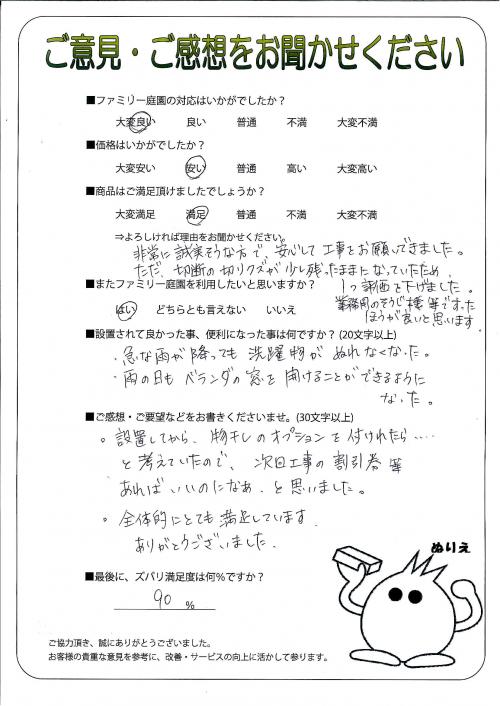 ご意見・ご感想をお聞かせください
■ファミリー庭園の対応はいかがでしたか？
大変良い 良い 普通 不満 大変不満
■価格はいかがでしたか？
大変安い 安い 普通 高い 大変高い
■商品はご満足頂けましたでしょうか？
大変満足 満足 普通 不満 大変不満
⇒よろしければ理由をお聞かせください。
非常に誠実そうな方で、安心して工事をお願いできました。
ただ、切断の切りクズが少し残ったままとなっていたため、
1つ評価を下げました。
業務用のそうじ機等で、すった
ほうが良いと思います
■またファミリー庭園を利用したいと思いますか？
はい どちらとも言えない いいえ
■設置されて良かった事、便利になった事は何ですか？(20文字以上)
・急な雨が降っても洗濯物がぬれなくなった。
・雨の日もベランダの窓を開けることができるように
なった。
■ご感想・ご要望などをお書きくださいませ。(30文字以上)
。設置してから、物干しのオプションを付けれたら‥‥
と考えていたので、次回工事の割引券等
あればいいのになあ、と思いました。
。全体的にとても満足しています。
ありがとうございました。
ぬりえ
■最後に、ズバリ満足度は何％ですか？
90 %
ご協力頂き、誠にありがとうございました。
お客様の貴重な意見を参考に、改善・サービスの向上に活かして参ります。